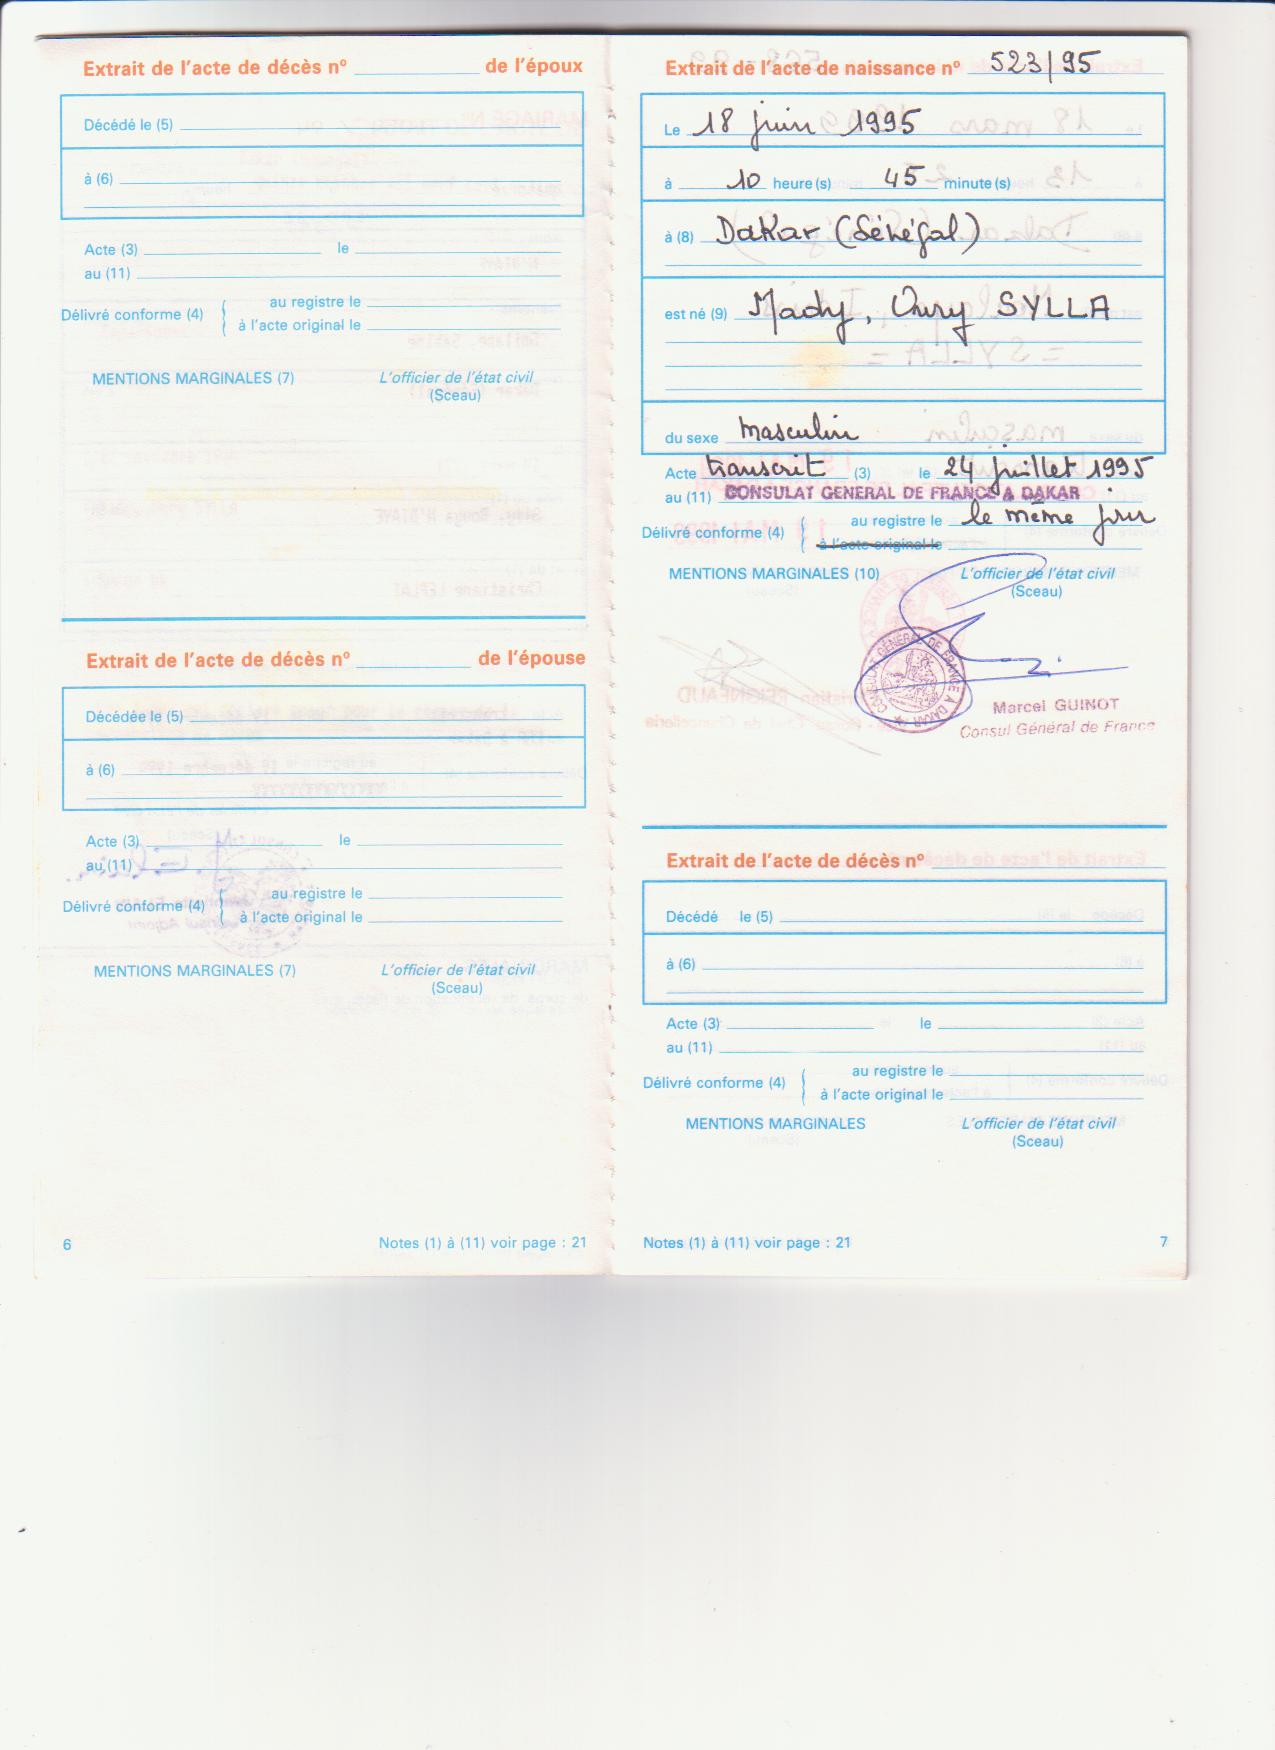 Extrait de l'acte de décès nº de l'époux
Décédé le (5)
à (6)
Acte (3) le
au (11)
Délivré conforme (4) au registre le
à l'acte original le
MENTIONS MARGINALES (7) L'officier de l'état civil
(Sceau)
Extrait de l'acte de décès nº de l'épouse
Décédée le (5)
à (6)
Acte (3) le
au (11)
Délivré conforme (4) au registre le
à l'acte original le
MENTIONS MARGINALES (7) L'officier de l'état civil
(Sceau)
6 Notes (1) à (11) voir page : 21
Extrait de l'acte de naissance nº 523/95
Le 18 juin 1995
à 10 heure(s) 45 minute(s)
à (8) Dakar (Sénégal)
est né (9) Mady, Oury SYLLA
du sexe masculin
Acte transcrit (3) le 24 juillet 1995
au (11) CONSULAT GENERAL DE FRANCE A DAKAR
Délivré conforme (4) au registre le le même jour
à l'acte original le
MENTIONS MARGINALES (10) L'officier de l'état civil
(Sceau)
CONSULAT GÉNÉRAL DE FRANCE A DAKAR
Marcel GUINOT
Consul Général de France
Extrait de l'acte de décès nº
Décédé le (5)
à (6)
Acte (3) le
au (11)
Délivré conforme (4) au registre le
à l'acte original le
MENTIONS MARGINALES L'officier de l'état civil
(Sceau)
Notes (1) à (11) voir page : 21 7